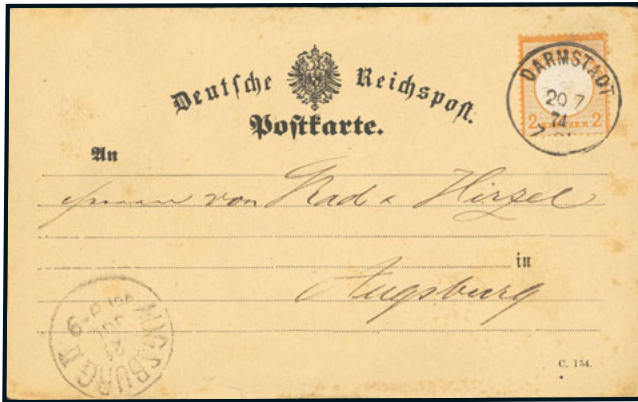 Deutsche Reichspost.
Postkarte.
DARMSTADT
20 7
74
2 2
An
von Rad & Hirzel
in
Augsburg
AUGSBURG II
21
JUL
C. 154.